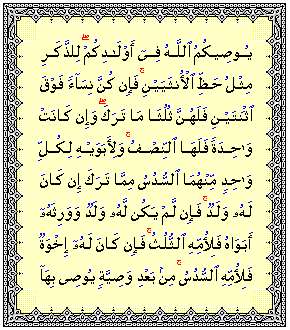 يُوصِيكُمُ ٱللَّهُ فِىٓ أَوْلَـٰدِكُمْ ۖ لِلذَّكَرِ
مِثْلُ حَظِّ ٱلْأُنثَيَيْنِ ۚ فَإِن كُنَّ نِسَآءً فَوْقَ
ٱثْنَتَيْنِ فَلَهُنَّ ثُلُثَا مَا تَرَكَ ۖ وَإِن كَانَتْ
وَٰحِدَةً فَلَهَا ٱلنِّصْفُ ۚ وَلِأَبَوَيْهِ لِكُلِّ
وَٰحِدٍ مِّنْهُمَا ٱلسُّدُسُ مِمَّا تَرَكَ إِن كَانَ
لَهُۥ وَلَدٌ ۚ فَإِن لَّمْ يَكُن لَّهُۥ وَلَدٌ وَوَرِثَهُۥٓ
أَبَوَاهُ فَلِأُمِّهِ ٱلثُّلُثُ ۚ فَإِن كَانَ لَهُۥٓ إِخْوَةٌ
فَلِأُمِّهِ ٱلسُّدُسُ ۚ مِنۢ بَعْدِ وَصِيَّةٍ يُوصِى بِهَآ